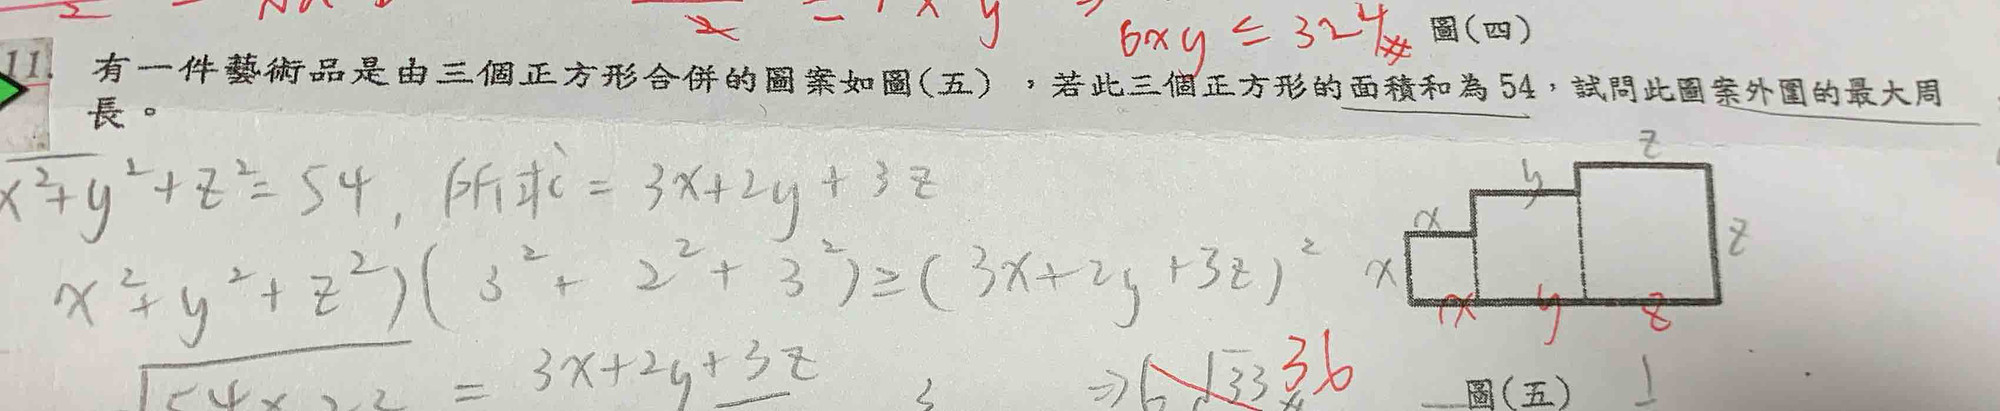 6xy ≤ 324 圖(四)
11. 有一件藝術品是由三個正方形合併的圖案如圖(五)，若此三個正方形的面積和為 54，試問此圖案外圍的最大周
長。
x²+y²+z²=54, 所求=3x+2y+3z
x²+y²+z²)(3²+2²+3²)≥(3x+2y+3z)²
z
y
x
x
z
x y z
= 3x+2y+3z
36
圖(五)